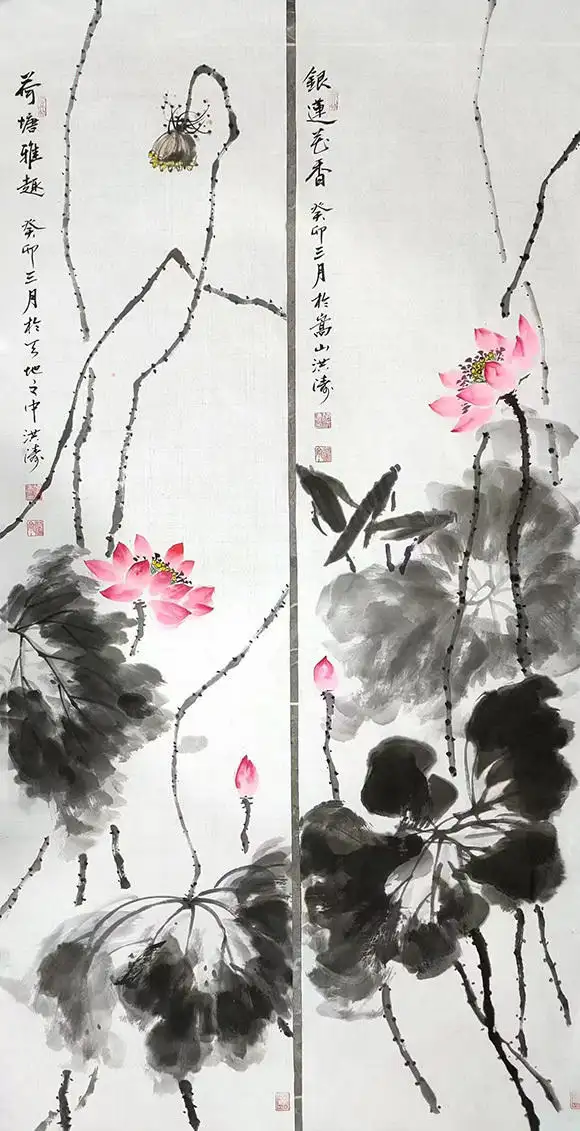 銀蓮花香 癸卯三月於嵩山洪濤
荷塘雅趣 癸卯三月於天地之中洪濤